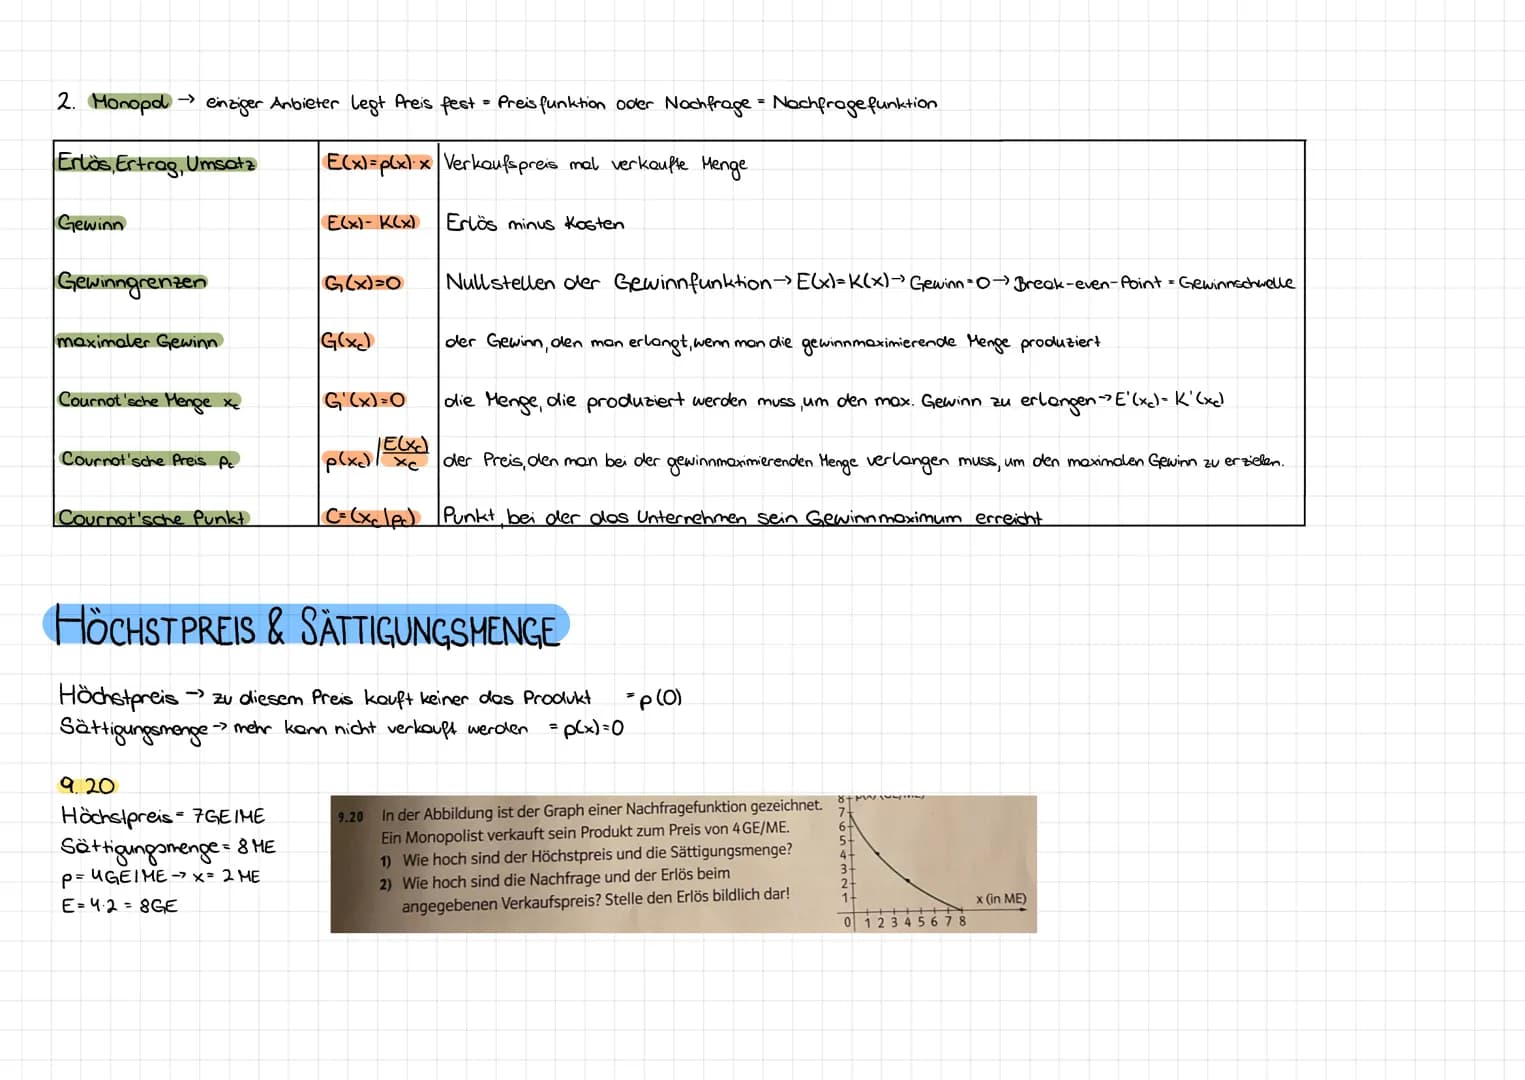 2. Monopol → einziger Anbieter legt Preis fest = Preisfunktion oder Nachfrage = Nachfragefunktion
Erlös, Ertrag, Umsatz E(x)=p(x)·x Verkaufspreis mal verkaufte Menge
Gewinn E(x)- K(x) Erlös minus Kosten
Gewinngrenzen G(x)=0 Nullstellen der Gewinnfunktion → E(x)=K(x) → Gewinn=0 → Break-even-Point = Gewinnschwelle
maximaler Gewinn G(xc) der Gewinn, den man erlangt, wenn man die gewinnmaximierende Menge produziert
Cournot'sche Menge xc G'(x)=0 die Menge, die produziert werden muss, um den max. Gewinn zu erlangen → E'(xc)= K'(xc)
Cournot'sche Preis pc p(xc) | E(xc)/xc der Preis, den man bei der gewinnmaximierenden Menge verlangen muss, um den maximalen Gewinn zu erzielen.
Cournot'sche Punkt C=(xc|pc) Punkt, bei der das Unternehmen sein Gewinnmaximum erreicht
HÖCHSTPREIS & SÄTTIGUNGSMENGE
Höchstpreis → zu diesem Preis kauft keiner das Produkt = p(0)
Sättigungsmenge → mehr kann nicht verkauft werden = p(x)=0
9.20
Höchstpreis = 7GE/ME
Sättigungsmenge = 8 ME
p= 4GE/ME → x= 2 ME
E= 4·2 = 8GE
9.20 In der Abbildung ist der Graph einer Nachfragefunktion gezeichnet.
Ein Monopolist verkauft sein Produkt zum Preis von 4 GE/ME.
1) Wie hoch sind der Höchstpreis und die Sättigungsmenge?
2) Wie hoch sind die Nachfrage und der Erlös beim
angegebenen Verkaufspreis? Stelle den Erlös bildlich dar!
8
7
6
5
4
3
2
1
x (in ME)
0 1 2 3 4 5 6 7 8